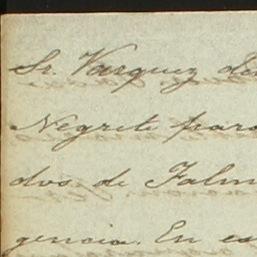 Sr. Vasquez de
Negrete para
dos de Falm
gencia. En es